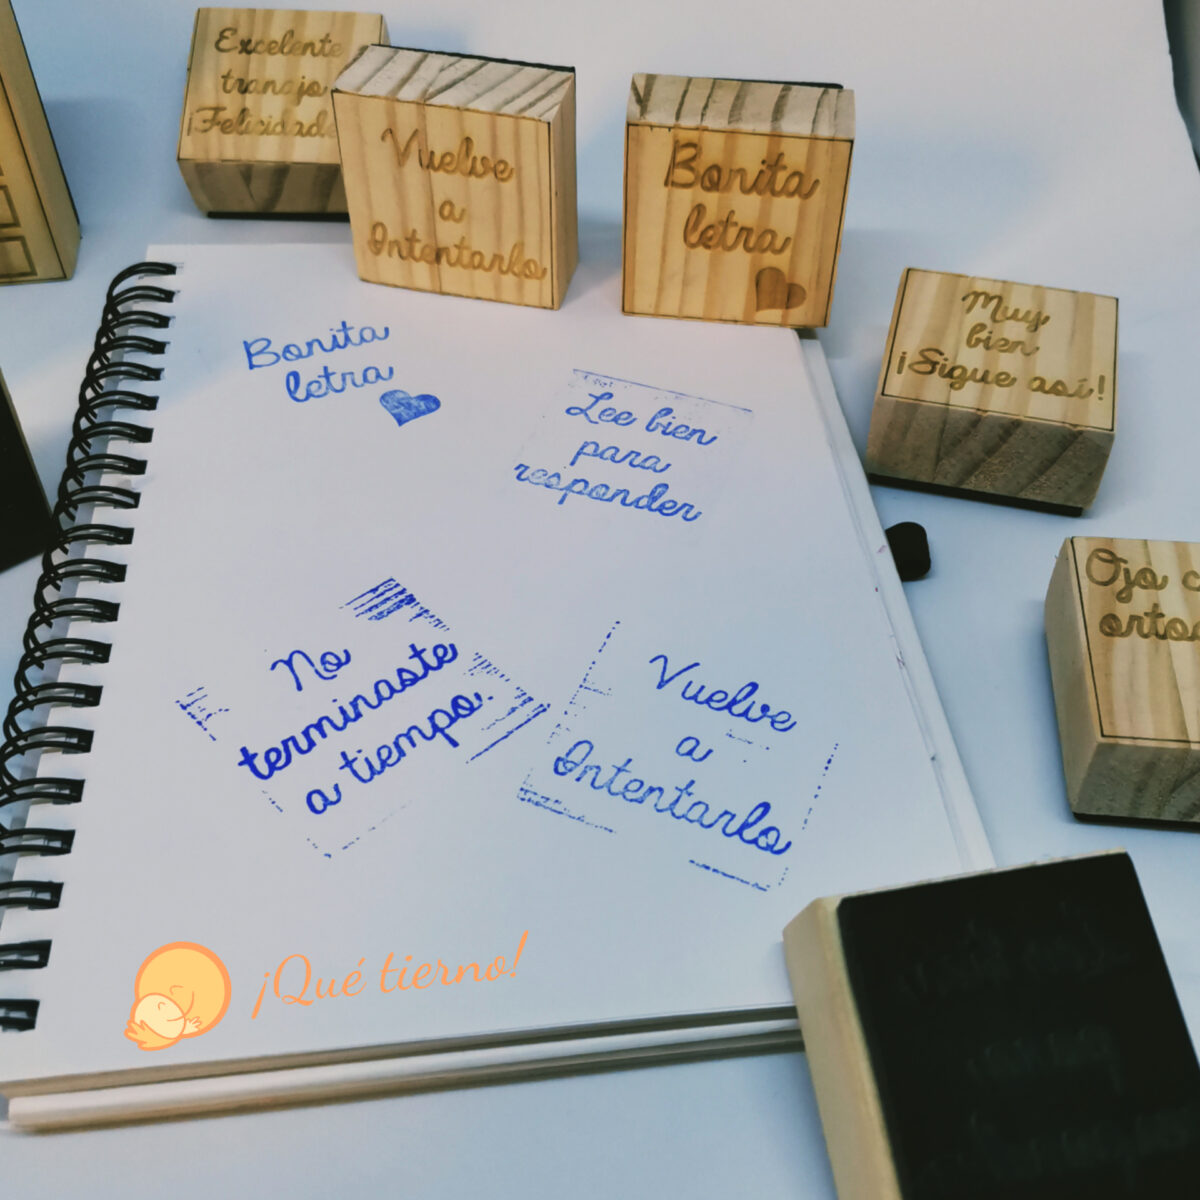 Excelente
tranajo
Vuelve
a
Intentarlo
Bonita
letra
Muy
bien
¡Sigue así!
Ojo
Bonita
letra
Lee bien
para
responder
No
terminaste
a tiempo.
Vuelve
a
Intentarlo
¡Qué tierno!